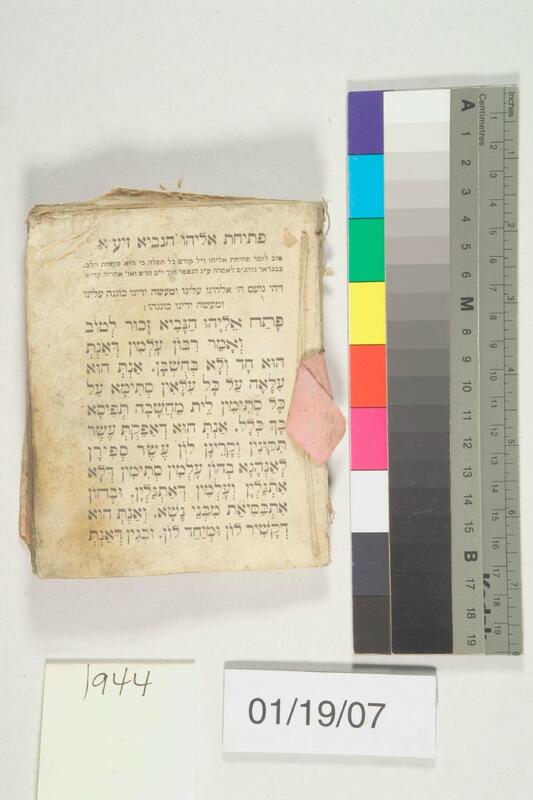 פתיחת אליהו הנביא זיע״א
טוב לומר פתיחת אליהו ז״ל קודם כל תפלה כי היא פותחת הלב.
ויהי נועם ה׳ אלהינו עלינו ומעשה ידינו כוננה עלינו
ומעשה ידינו כוננהו:
פָּתַח אֵלִיָּהוּ הַנָּבִיא זָכוּר לְטוֹב
וְאָמַר רִבּוֹן עָלְמִין דְּאַנְתְּ
הוּא חָד וְלָא בְּחֻשְׁבָּן. אַנְתְּ הוּא
עִלָּאָה עַל כָּל עִלָּאִין סְתִימָא עַל
כָּל סְתִימִין לֵית מַחֲשָׁבָה תְּפִיסָא
בָּךְ כְּלָל. אַנְתְּ הוּא דְּאַפִּקְתְּ עֶשֶׂר
תִּקּוּנִין וְקָרֵינָן לוֹן עֶשֶׂר סְפִירָן
לְאַנְהָגָא בְּהוֹן עָלְמִין סְתִימִין דְּלָא
אִתְגַּלְיָן וְעָלְמִין דְּאִתְגַּלְיָן. וּבְהוֹן
אִתְכַּסִּיאַת מִבְּנֵי נָשָׁא. וְאַנְתְּ הוּא
דְּקָשִׁיר לוֹן וּמְיַחֵד לוֹן. וּבְגִין דְּאַנְתְּ
Inches
Centimetres
A 1 2 3 4 5 6 M 8 9 10 11 12 13 14 15 B 17 18 19
1944
01/19/07